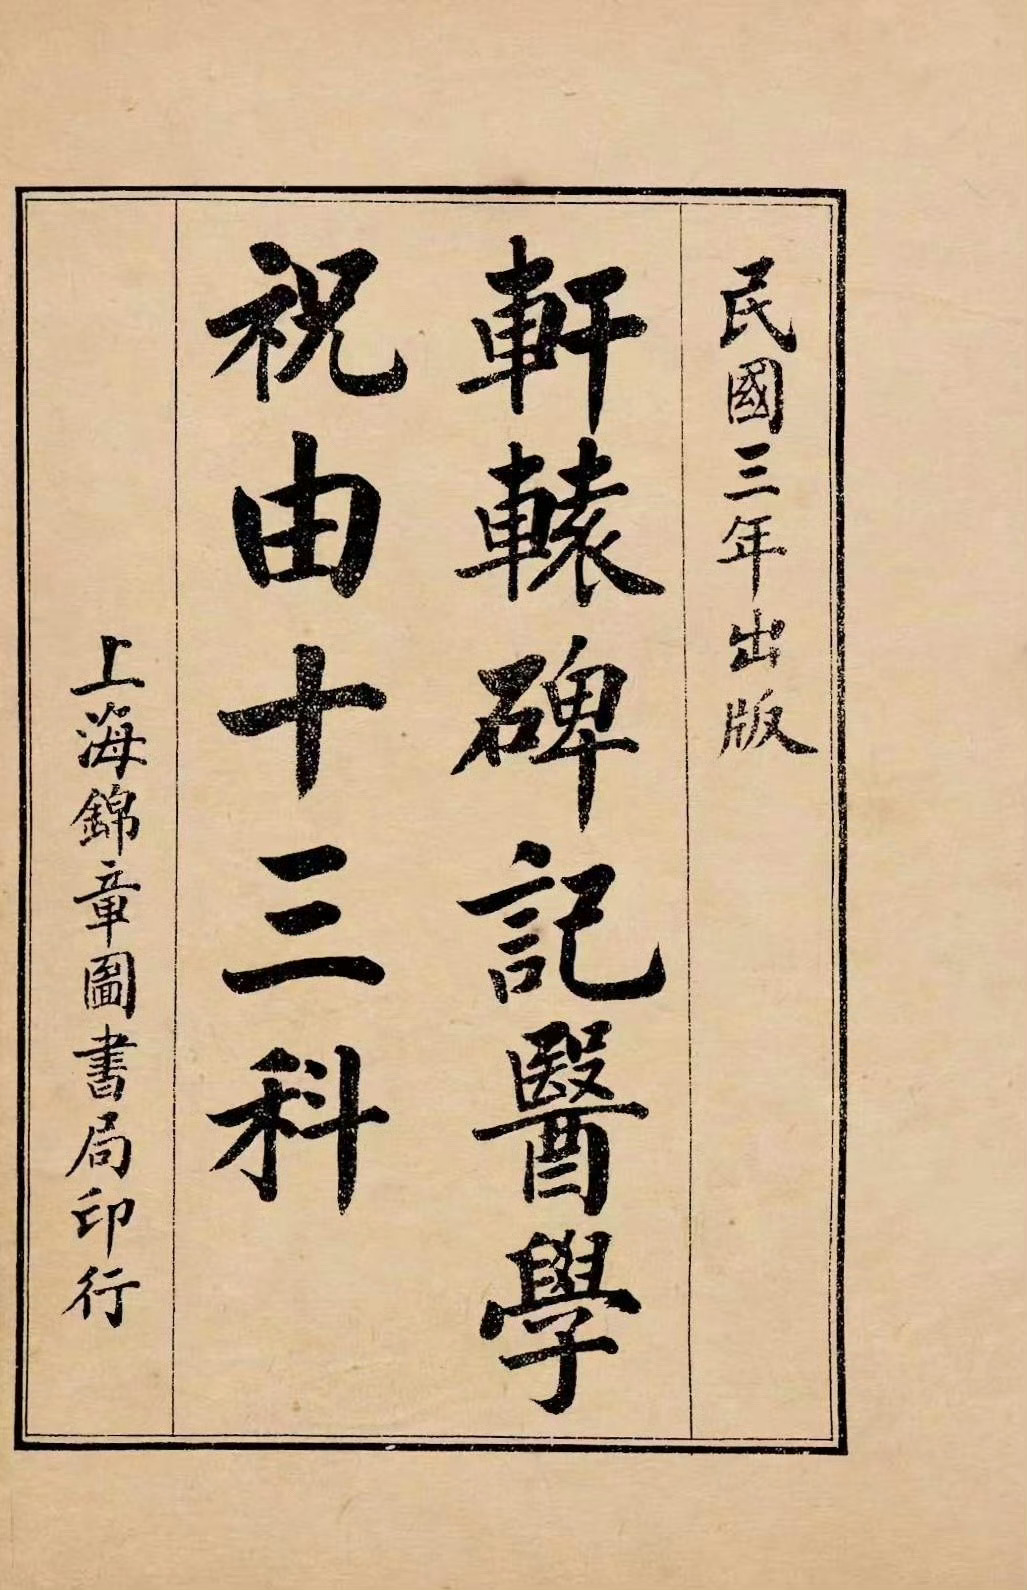 民國三年出版
軒轅碑記醫學
祝由十三科
上海錦章圖書局印行